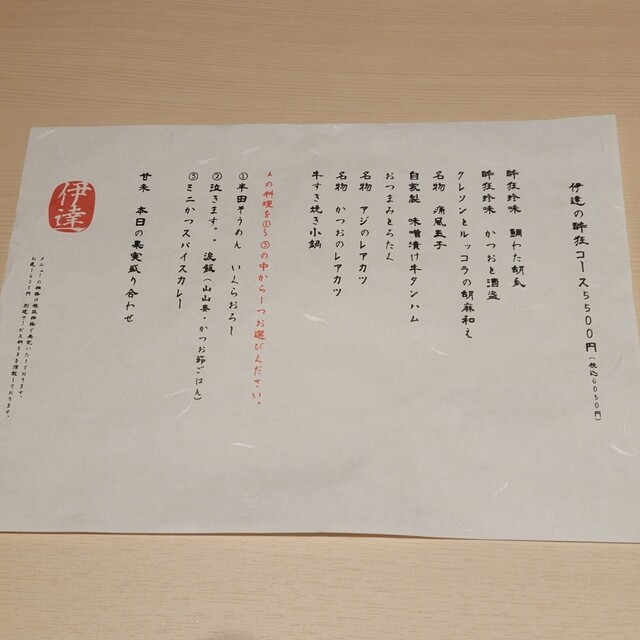 伊達の酔狂コース5500円(税込6050円)
酔狂珍味 鯛わた胡瓜
酔狂珍味 かつおと酒盗
クレソンとルッコラの胡麻和え
名物 痛風玉子
自家製 味噌漬け牛タンハム
おつまみとろたく
名物 アジのレアカツ
名物 かつおのレアカツ
牛すき焼き小鍋
〆の料理を①〜③の中から一つお選びください。
①半田そうめん いくらおろし
②泣きます。。涙飯(山山葵・かつお節ごはん)
③ミニかつスパイスカレー
甘未 本日の果実盛り合わせ
伊達
メニューの価格は税抜価格で表記いたしております。